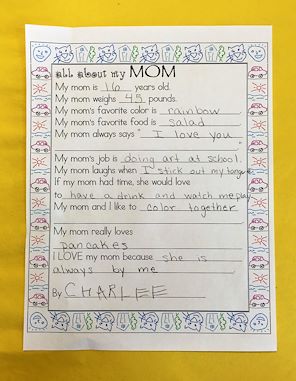 all about my MOM
My mom is 16 years old.
My mom weighs 45 pounds.
My mom's favorite color is rainbow.
My mom's favorite food is salad.
My mom always says "I love you"
My mom's job is doing art at school.
My mom laughs when I stick out my tongue
If my mom had time, she would love
to have a drink and watch me play.
My mom and I like to color together.
My mom really loves
pancakes
I LOVE my mom because she is
always by me.
By CHARLEE